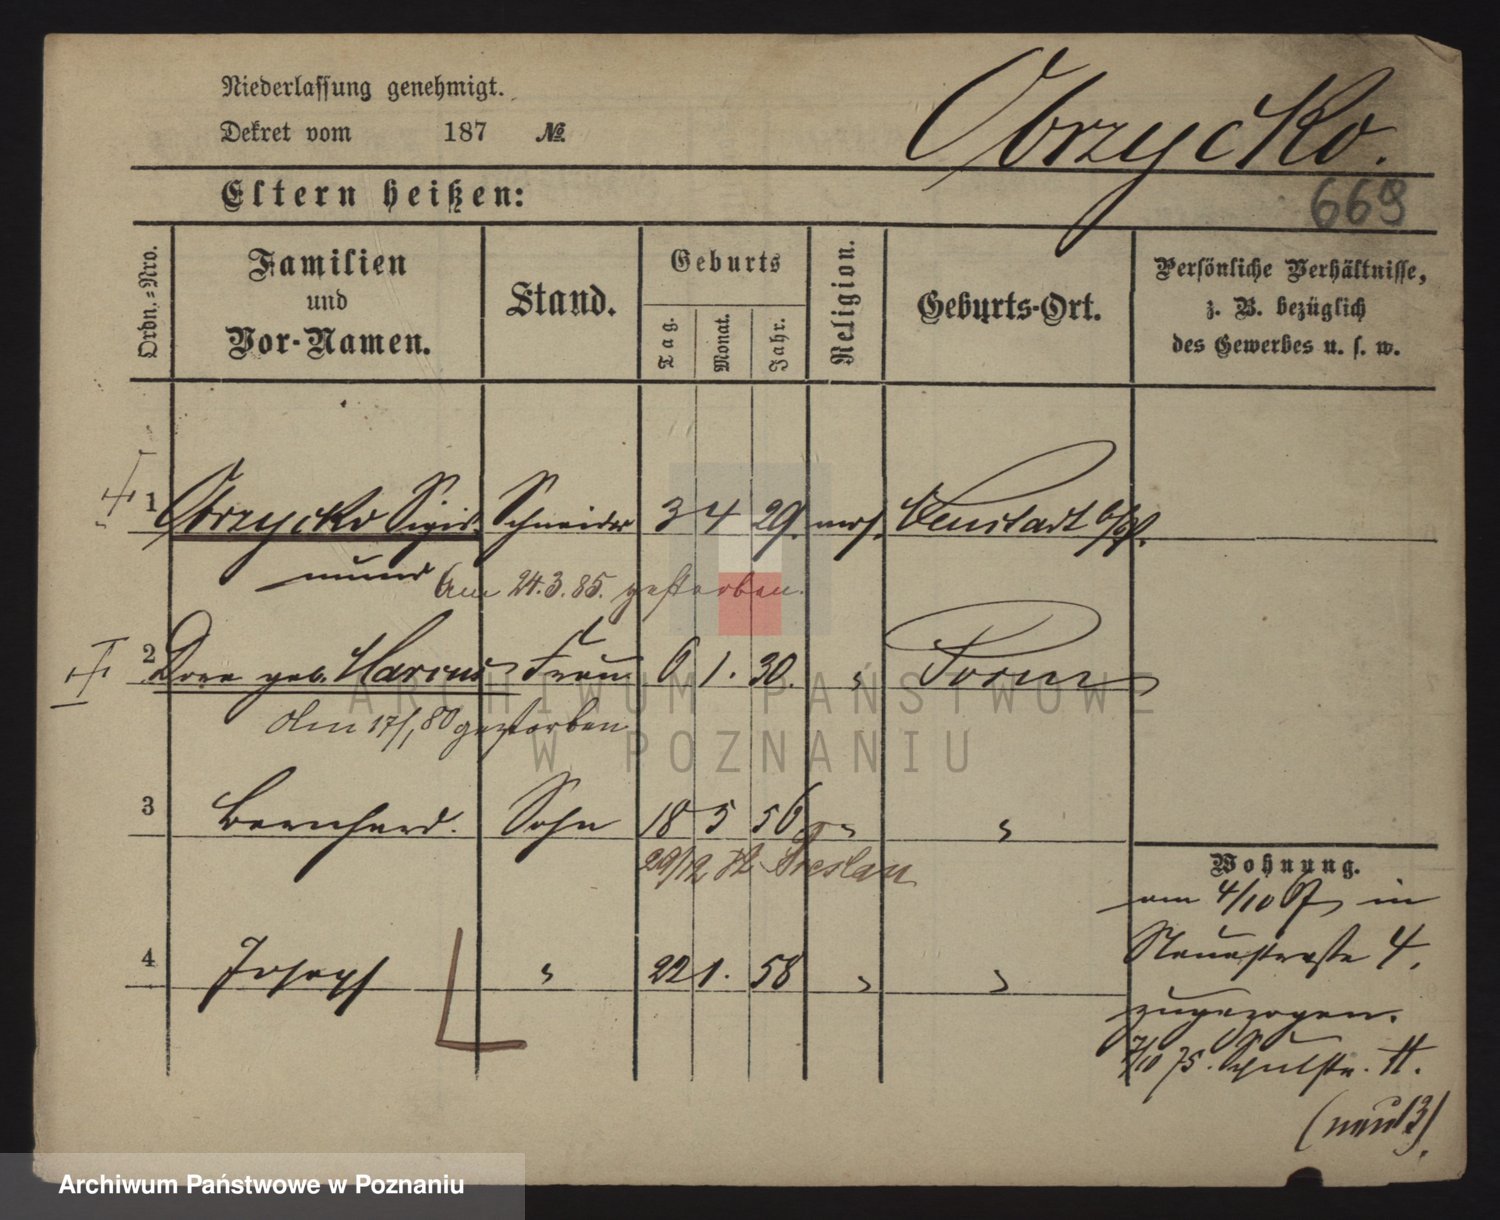 Niederlassung genehmigt.
Dekret vom 187 №
Obrzycko.
669
Eltern heißen:
Ordn.-Nro.
Familien
und
Vor-Namen.
Stand.
Geburts
Tag.
Monat.
Jahr.
Religion.
Geburts-Ort.
Persönliche Verhältnisse,
z. B. bezüglich
des Gewerbes u. s. w.
1 Obrzycko Sigis- Schneider 3 4 29. mos. Neustadt b/P.
mund
Am 24.3.85. gestorben.
2 Dore geb. Marcus Frau 6 1. 30. " Posen
Am 17/1.80 gestorben
3 Bernhard. Sohn 18 5 56 " "
29/12 Breslau
4 Joseph " 22 1. 58 " "
Wohnung.
am 4/10 67 in
Neuestraße 4.
zugezogen.
7/10 75. Schulstr. 11.
(neu 13).
ARCHIWUM PAŃSTWOWE
W POZNANIU
Archiwum Państwowe w Poznaniu